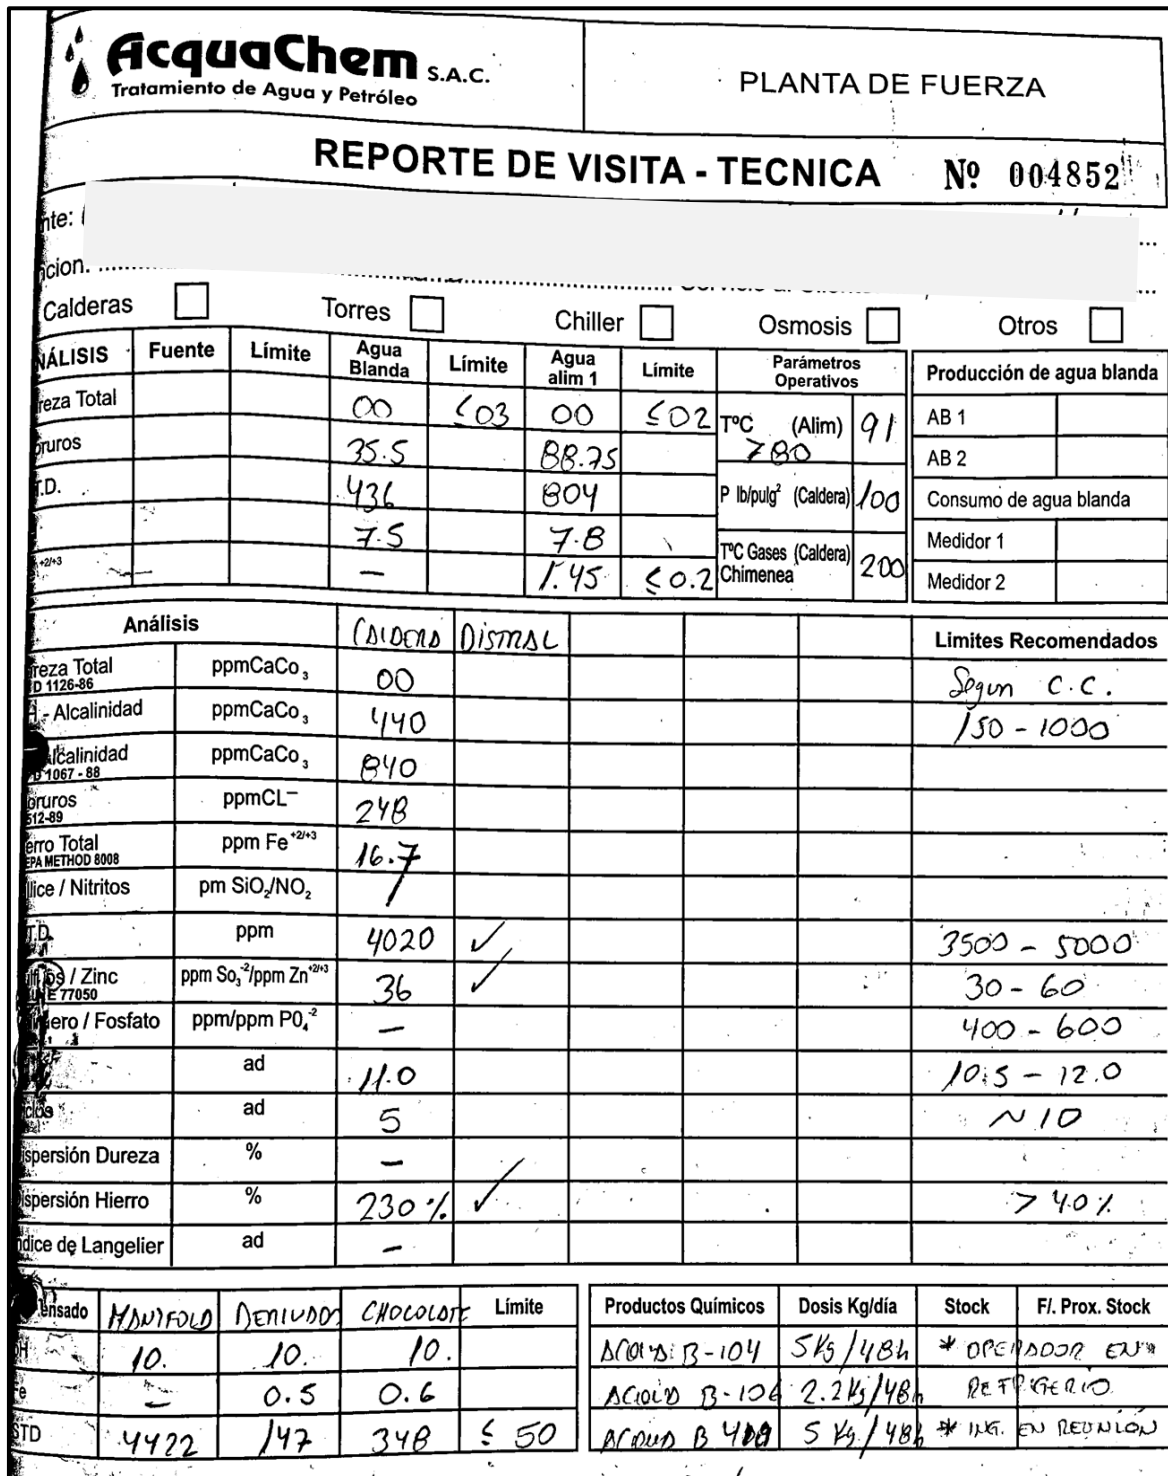 AcquaChem S.A.C.
Tratamiento de Agua y Petróleo
PLANTA DE FUERZA
REPORTE DE VISITA - TECNICA Nº 004852
nte:
cion.
Calderas Torres Chiller Osmosis Otros
NÁLISIS Fuente Límite Agua Blanda Límite Agua alim 1 Límite Parámetros Operativos Producción de agua blanda
reza Total 00 ≤03 00 ≤02 TºC (Alim) >80 91 AB 1
oruros 35.5 88.75 AB 2
T.D. 436 804 P lb/pulg² (Caldera) 100 Consumo de agua blanda
7.5 7.8 Medidor 1
+2/+3 — 1.45 ≤0.2 TºC Gases (Caldera) Chimenea 200 Medidor 2
Análisis CALDERA DISTRAL Limites Recomendados
reza Total D 1126-86 ppmCaCo₃ 00 Segun C.C.
- Alcalinidad ppmCaCo₃ 440 150 - 1000
lcalinidad D 1067 - 88 ppmCaCo₃ 840
oruros 512-89 ppmCL⁻ 248
erro Total EPA METHOD 8008 ppm Fe⁺²/⁺³ 16.7
lice / Nitritos pm SiO₂/NO₂ /
T.D. ppm 4020 ✓ 3500 - 5000
os / Zinc E 77050 ppm So₃⁻²/ppm Zn⁺²/⁺³ 36 ✓ 30 - 60
ero / Fosfato ppm/ppm P0₄⁻² — 400 - 600
ad 11.0 10.5 - 12.0
clos ad 5 ~ 10
ispersión Dureza % —
ispersión Hierro % 230% ✓ > 40%
ndice de Langelier ad —
ensado MANIFOLD DERIVADOS CHOCOLATE Límite Productos Químicos Dosis Kg/día Stock F/. Prox. Stock
pH 10. 10. 10. B-104 5Kg/48h * OPERADOR EN
Fe — 0.5 0.6 B-106 2.2Kg/48h REFRIGERIO
STD 4422 147 348 ≤ 50 B 5 Kg/48h * ING. EN REUNIÓN